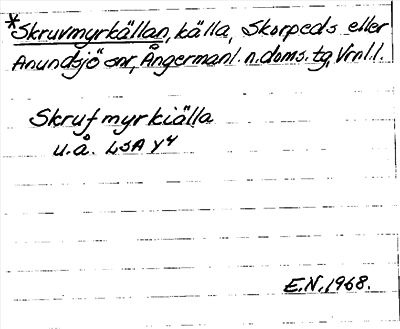 *Skruvmyrkällan, källa, Skorpeds eller
Anundsjö snr, Ångermanl. n. doms. tg, Vrnl.l.
Skruf myrkiälla
u.å. LSA Y4
E.N. 1968.